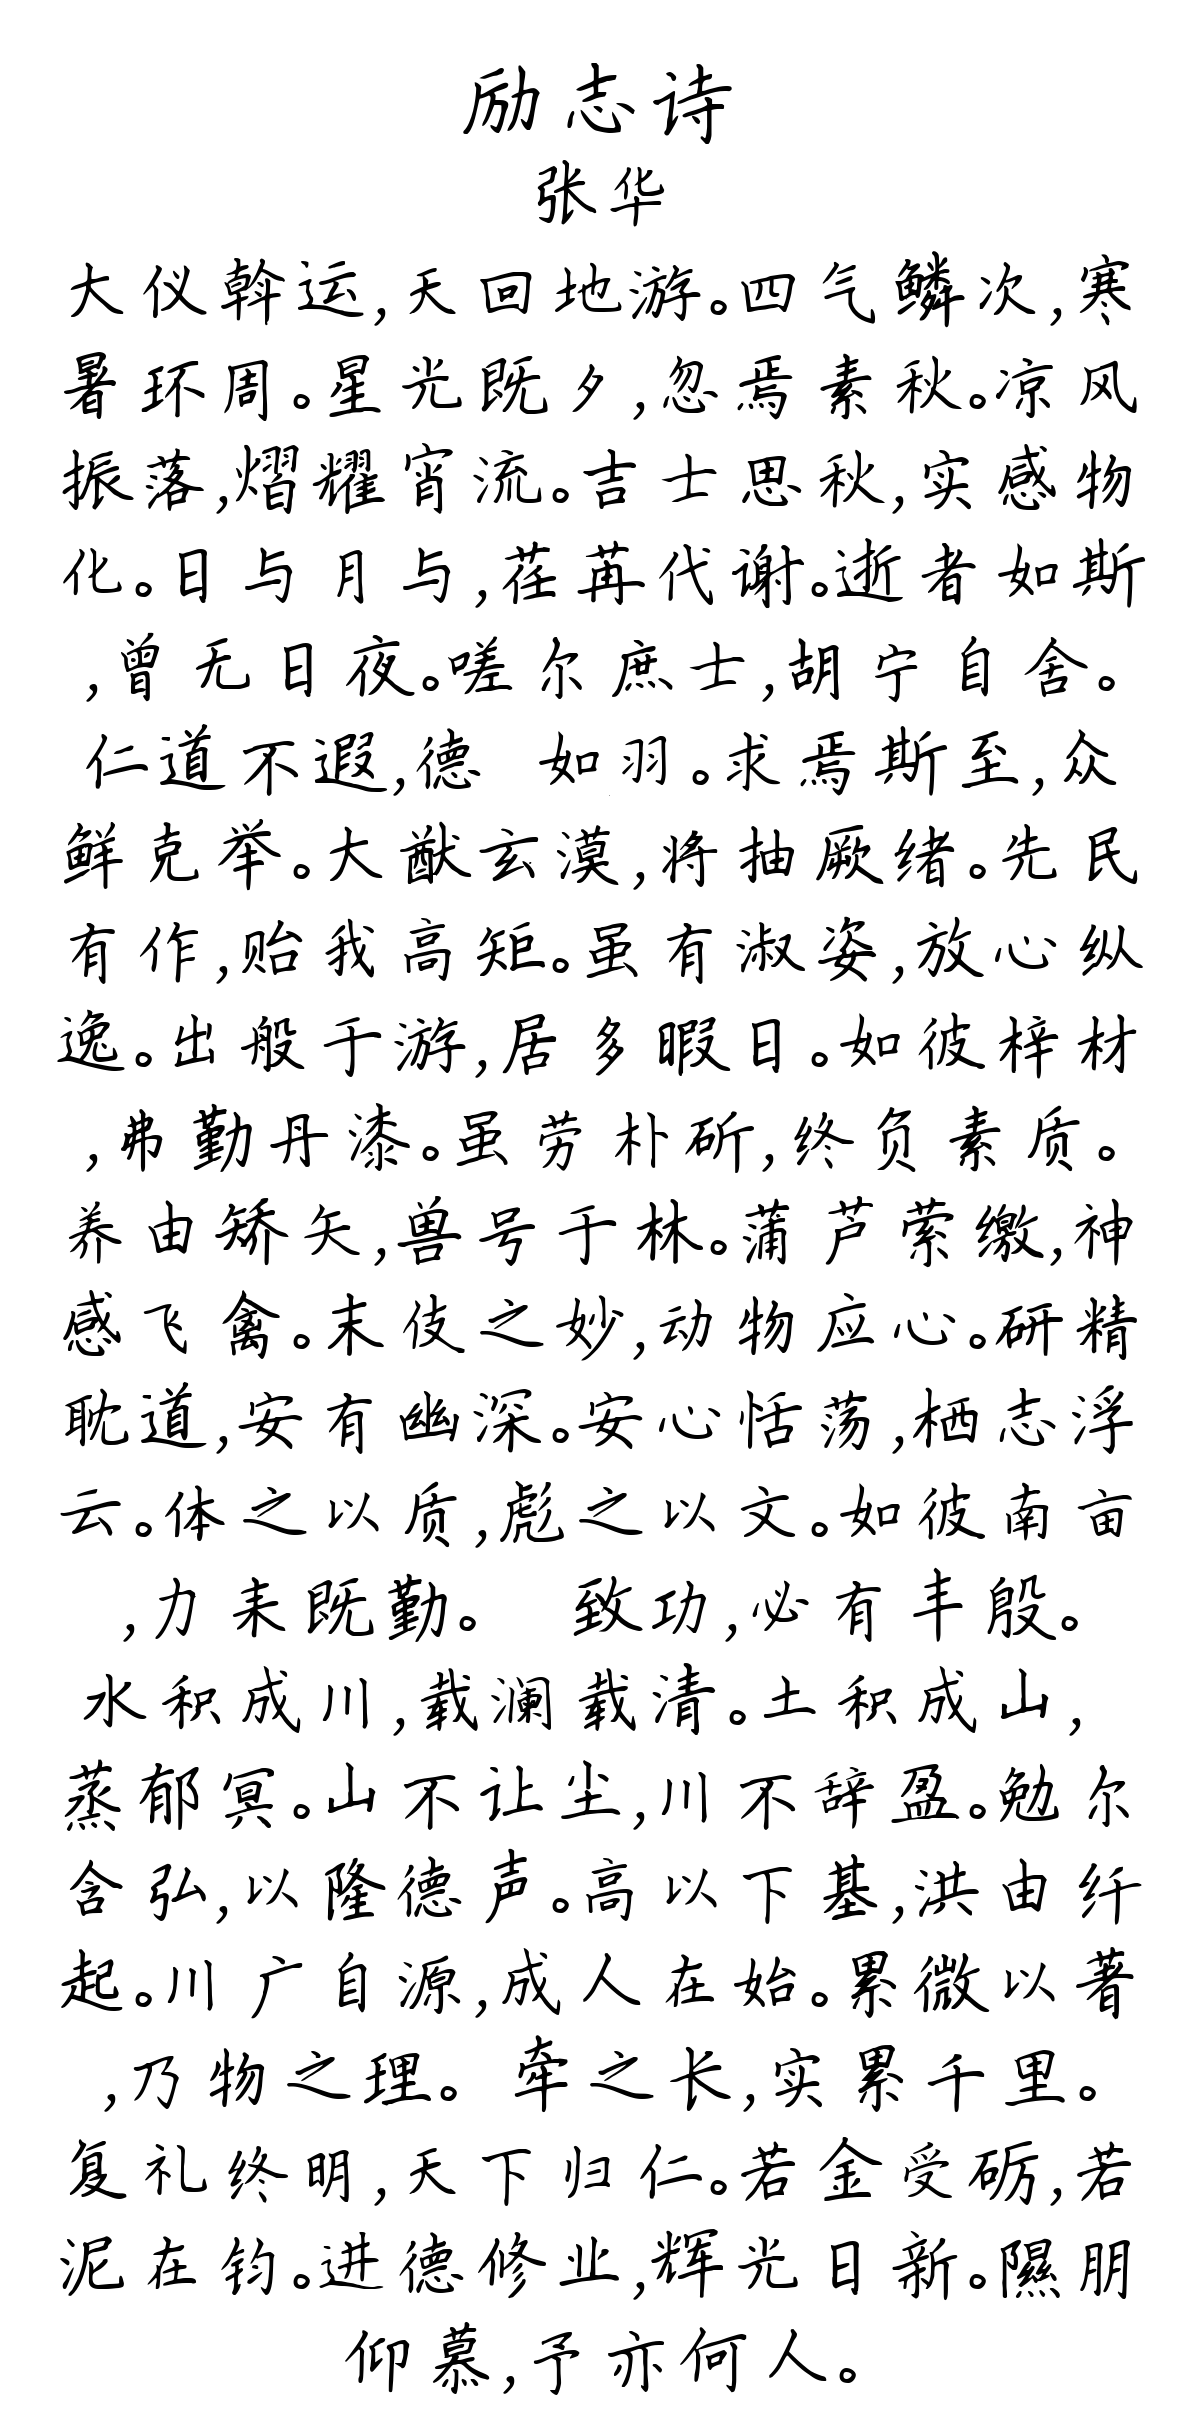 励志诗
张华
大仪斡运,天回地游。四气鳞次,寒
暑环周。星光既夕,忽焉素秋。凉风
振落,熠耀宵流。吉士思秋,实感物
化。日与月与,荏苒代谢。逝者如斯
,曾无日夜。嗟尔庶士,胡宁自舍。
仁道不遐,德 如羽。求焉斯至,众
鲜克举。大猷玄漠,将抽厥绪。先民
有作,贻我高矩。虽有淑姿,放心纵
逸。出般于游,居多暇日。如彼梓材
,弗勤丹漆。虽劳朴斫,终负素质。
养由矫矢,兽号于林。蒲芦萦缴,神
感飞禽。末伎之妙,动物应心。研精
耽道,安有幽深。安心恬荡,栖志浮
云。体之以质,彪之以文。如彼南亩
,力耒既勤。 致功,必有丰殷。
水积成川,载澜载清。土积成山,
蒸郁冥。山不让尘,川不辞盈。勉尔
含弘,以隆德声。高以下基,洪由纤
起。川广自源,成人在始。累微以著
,乃物之理。 牵之长,实累千里。
复礼终明,天下归仁。若金受砺,若
泥在钧。进德修业,辉光日新。隰朋
仰慕,予亦何人。